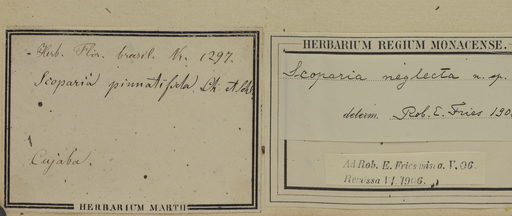 Herb. Flor. brasil. Nr. 1297.
Scoparia pinnatifida Ch. &
Cujaba.
HERBARIUM MARTII
HERBARIUM REGIUM MONACENSE.
Scoparia neglecta n. sp.
determ. Rob. E. Fries 190
Ad Rob. E. Fries missa. V. 06.
Reversa VI. 1906.